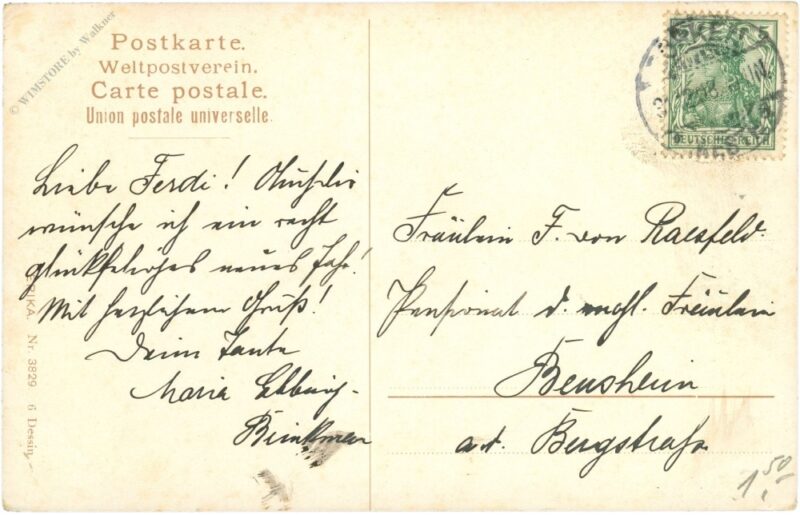 © WIMSTORE by Walkner
Postkarte.
Weltpostverein.
Carte postale.
Union postale universelle.
DEUTSCHES REICH
Liebe Ferdi! Auch dir
wünsche ich ein recht
glückseliges neues Jahr!
Mit herzlichem Gruß!
Deine Tante
Maria
Brinkman
Fräulein F. von Raesfeld.
Pensionat d. engl. Fräulein
Bensheim
a.d. Bergstraße
Nr. 3829 6 Dessin.
1,50